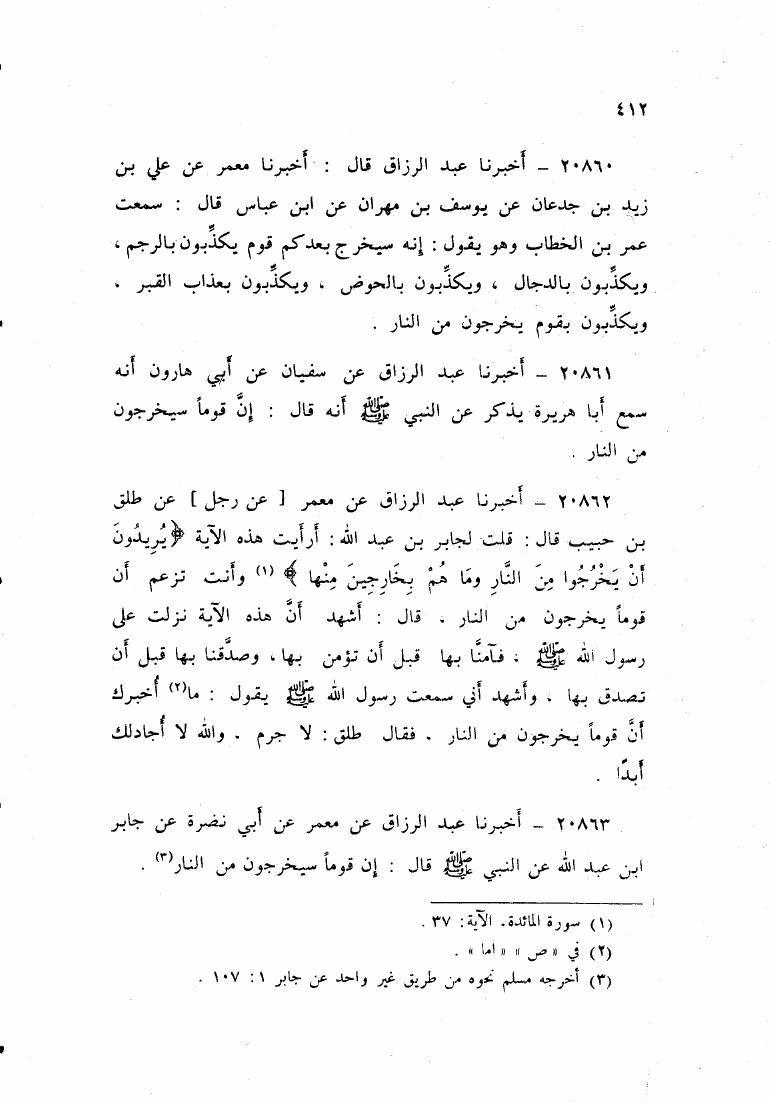 ٤١٢
٢٠٨٦٠ - أخبرنا عبد الرزاق قال : أخبرنا معمر عن علي بن
زيد بن جدعان عن يوسف بن مهران عن ابن عباس قال : سمعت
عمر بن الخطاب وهو يقول : إنه سيخرج بعدكم قوم يكذِّبون بالرجم ،
ويكذِّبون بالدجال ، ويكذِّبون بالحوض ، ويكذِّبون بعذاب القبر ،
ويكذِّبون بقوم يخرجون من النار .
٢٠٨٦١ - أخبرنا عبد الرزاق عن سفيان عن أبي هارون أنه
سمع أبا هريرة يذكر عن النبي ﷺ أنه قال : إنَّ قوماً سيخرجون
من النار .
٢٠٨٦٢ - أخبرنا عبد الرزاق عن معمر [ عن رجل ] عن طلق
بن حبيب قال : قلت لجابر بن عبد الله : أرأيت هذه الآية ﴿يُرِيدُونَ
أَنْ يَخْرُجُوا مِنَ النَّارِ وَمَا هُمْ بِخَارِجِينَ مِنْها ﴾ (١) وأنت تزعم أن
قوماً يخرجون من النار ، قال : أشهد أنَّ هذه الآية نزلت على
رسول الله ﷺ ، فآمنَّا بها قبل أن تؤمن بها ، وصدَّقنا بها قبل أن
تصدق بها ، وأشهد أني سمعت رسول الله ﷺ يقول : ما(٢) أخبرك
أنَّ قوماً يخرجون من النار . فقال طلق : لا جرم . والله لا أجادلك
أبدًا .
٢٠٨٦٣ - أخبرنا عبد الرزاق عن معمر عن أبي نضرة عن جابر
ابن عبد الله عن النبي ﷺ قال : إن قوماً سيخرجون من النار(٣) .
(١) سورة المائدة، الآية : ٣٧ .
(٢) في « ص » « اما » .
(٣) أخرجه مسلم نحوه من طريق غير واحد عن جابر ١ : ١٠٧ .